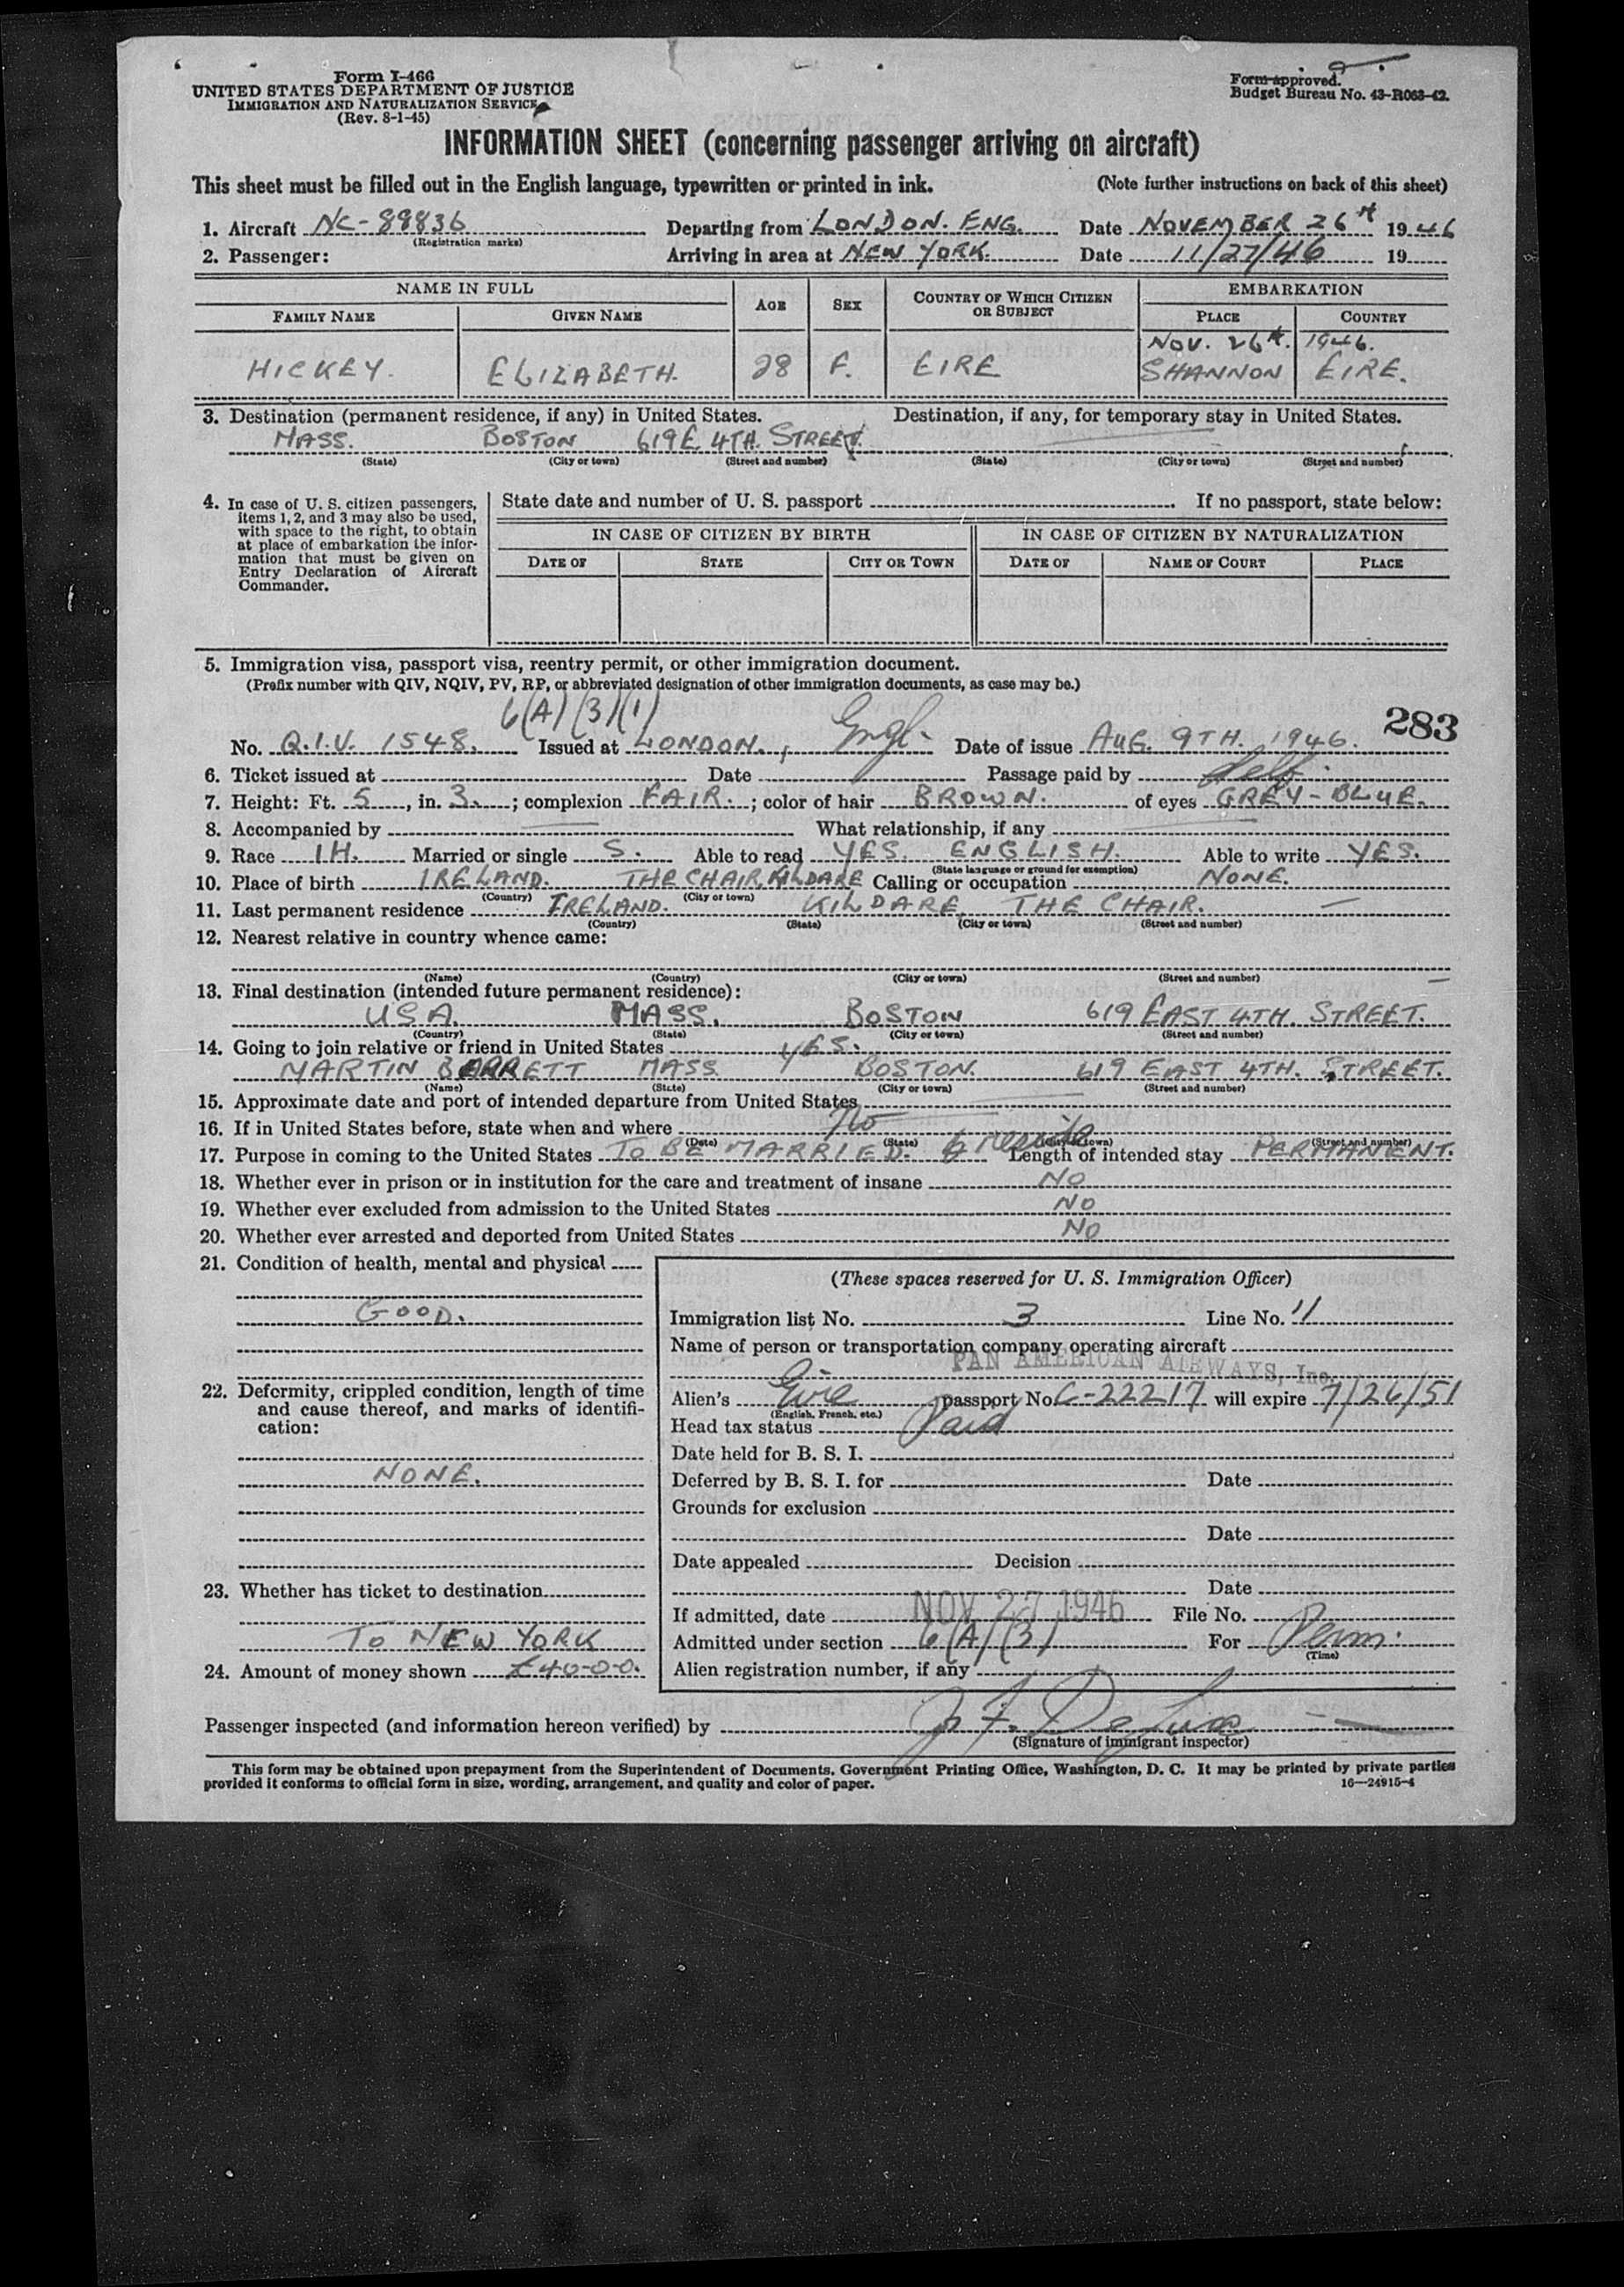 Form I-466
UNITED STATES DEPARTMENT OF JUSTICE
IMMIGRATION AND NATURALIZATION SERVICE
(Rev. 8-1-45)
Form approved.
Budget Bureau No. 43-R063-42.
INFORMATION SHEET (concerning passenger arriving on aircraft)
This sheet must be filled out in the English language, typewritten or printed in ink. (Note further instructions on back of this sheet)
1. Aircraft NC-88836 Departing from LONDON. ENG. Date NOVEMBER 26th 1946
(Registration marks)
2. Passenger: Arriving in area at NEW YORK. Date 11/27/46 19
NAME IN FULL AGE SEX COUNTRY OF WHICH CITIZEN OR SUBJECT EMBARKATION
FAMILY NAME GIVEN NAME PLACE COUNTRY
NOV. 26th. 1946.
HICKEY. ELIZABETH. 28 F. EIRE SHANNON EIRE.
3. Destination (permanent residence, if any) in United States. Destination, if any, for temporary stay in United States.
MASS. BOSTON 619 E 4TH. STREET.
(State) (City or town) (Street and number) (State) (City or town) (Street and number)
4. In case of U. S. citizen passengers, items 1, 2, and 3 may also be used, with space to the right, to obtain at place of embarkation the information that must be given on Entry Declaration of Aircraft Commander.
State date and number of U. S. passport If no passport, state below:
IN CASE OF CITIZEN BY BIRTH IN CASE OF CITIZEN BY NATURALIZATION
DATE OF STATE CITY OR TOWN DATE OF NAME OF COURT PLACE
5. Immigration visa, passport visa, reentry permit, or other immigration document.
(Prefix number with QIV, NQIV, PV, RP, or abbreviated designation of other immigration documents, as case may be.)
6(A)(3)(1)
283
No. Q.I.V. 1548. Issued at LONDON., Engl. Date of issue AUG. 9TH. 1946.
6. Ticket issued at Date Passage paid by Self.
7. Height: Ft. 5, in. 3.; complexion FAIR.; color of hair BROWN. of eyes GREY-BLUE.
8. Accompanied by What relationship, if any
9. Race IH. Married or single S. Able to read YES. ENGLISH. Able to write YES.
(State language or ground for exemption)
10. Place of birth IRELAND. THE CHAIR, KILDARE Calling or occupation NONE.
(Country) (City or town)
11. Last permanent residence IRELAND. KILDARE, THE CHAIR.
(Country) (State) (City or town) (Street and number)
12. Nearest relative in country whence came:
(Name) (Country) (City or town) (Street and number)
13. Final destination (intended future permanent residence):
USA. MASS. BOSTON 619 EAST 4TH. STREET.
(Country) (State) (City or town) (Street and number)
14. Going to join relative or friend in United States YES.
MARTIN BARRETT MASS. BOSTON. 619 EAST 4TH. STREET.
(Name) (State) (City or town) (Street and number)
15. Approximate date and port of intended departure from United States
16. If in United States before, state when and where No
(Date) (State) (City or town) (Street and number)
17. Purpose in coming to the United States TO BE MARRIED. & reside Length of intended stay PERMANENT.
18. Whether ever in prison or in institution for the care and treatment of insane NO
19. Whether ever excluded from admission to the United States NO
20. Whether ever arrested and deported from United States NO
21. Condition of health, mental and physical
GOOD.
22. Deformity, crippled condition, length of time and cause thereof, and marks of identification:
NONE.
23. Whether has ticket to destination
TO NEW YORK
24. Amount of money shown £40-0-0.
(These spaces reserved for U. S. Immigration Officer)
Immigration list No. 3 Line No. 11
Name of person or transportation company operating aircraft
PAN AMERICAN AIRWAYS, Inc.
Alien's Eire passport No. C-22217 will expire 7/26/51
(English, French, etc.)
Head tax status Paid
Date held for B. S. I.
Deferred by B. S. I. for Date
Grounds for exclusion
Date
Date appealed Decision
Date
If admitted, date NOV 27 1946 File No.
Admitted under section 6(A)(3) For Perm.
(Time)
Alien registration number, if any
Passenger inspected (and information hereon verified) by J. F. DeLuca
(Signature of immigrant inspector)
This form may be obtained upon prepayment from the Superintendent of Documents, Government Printing Office, Washington, D. C. It may be printed by private parties
provided it conforms to official form in size, wording, arrangement, and quality and color of paper. 16—24915-4